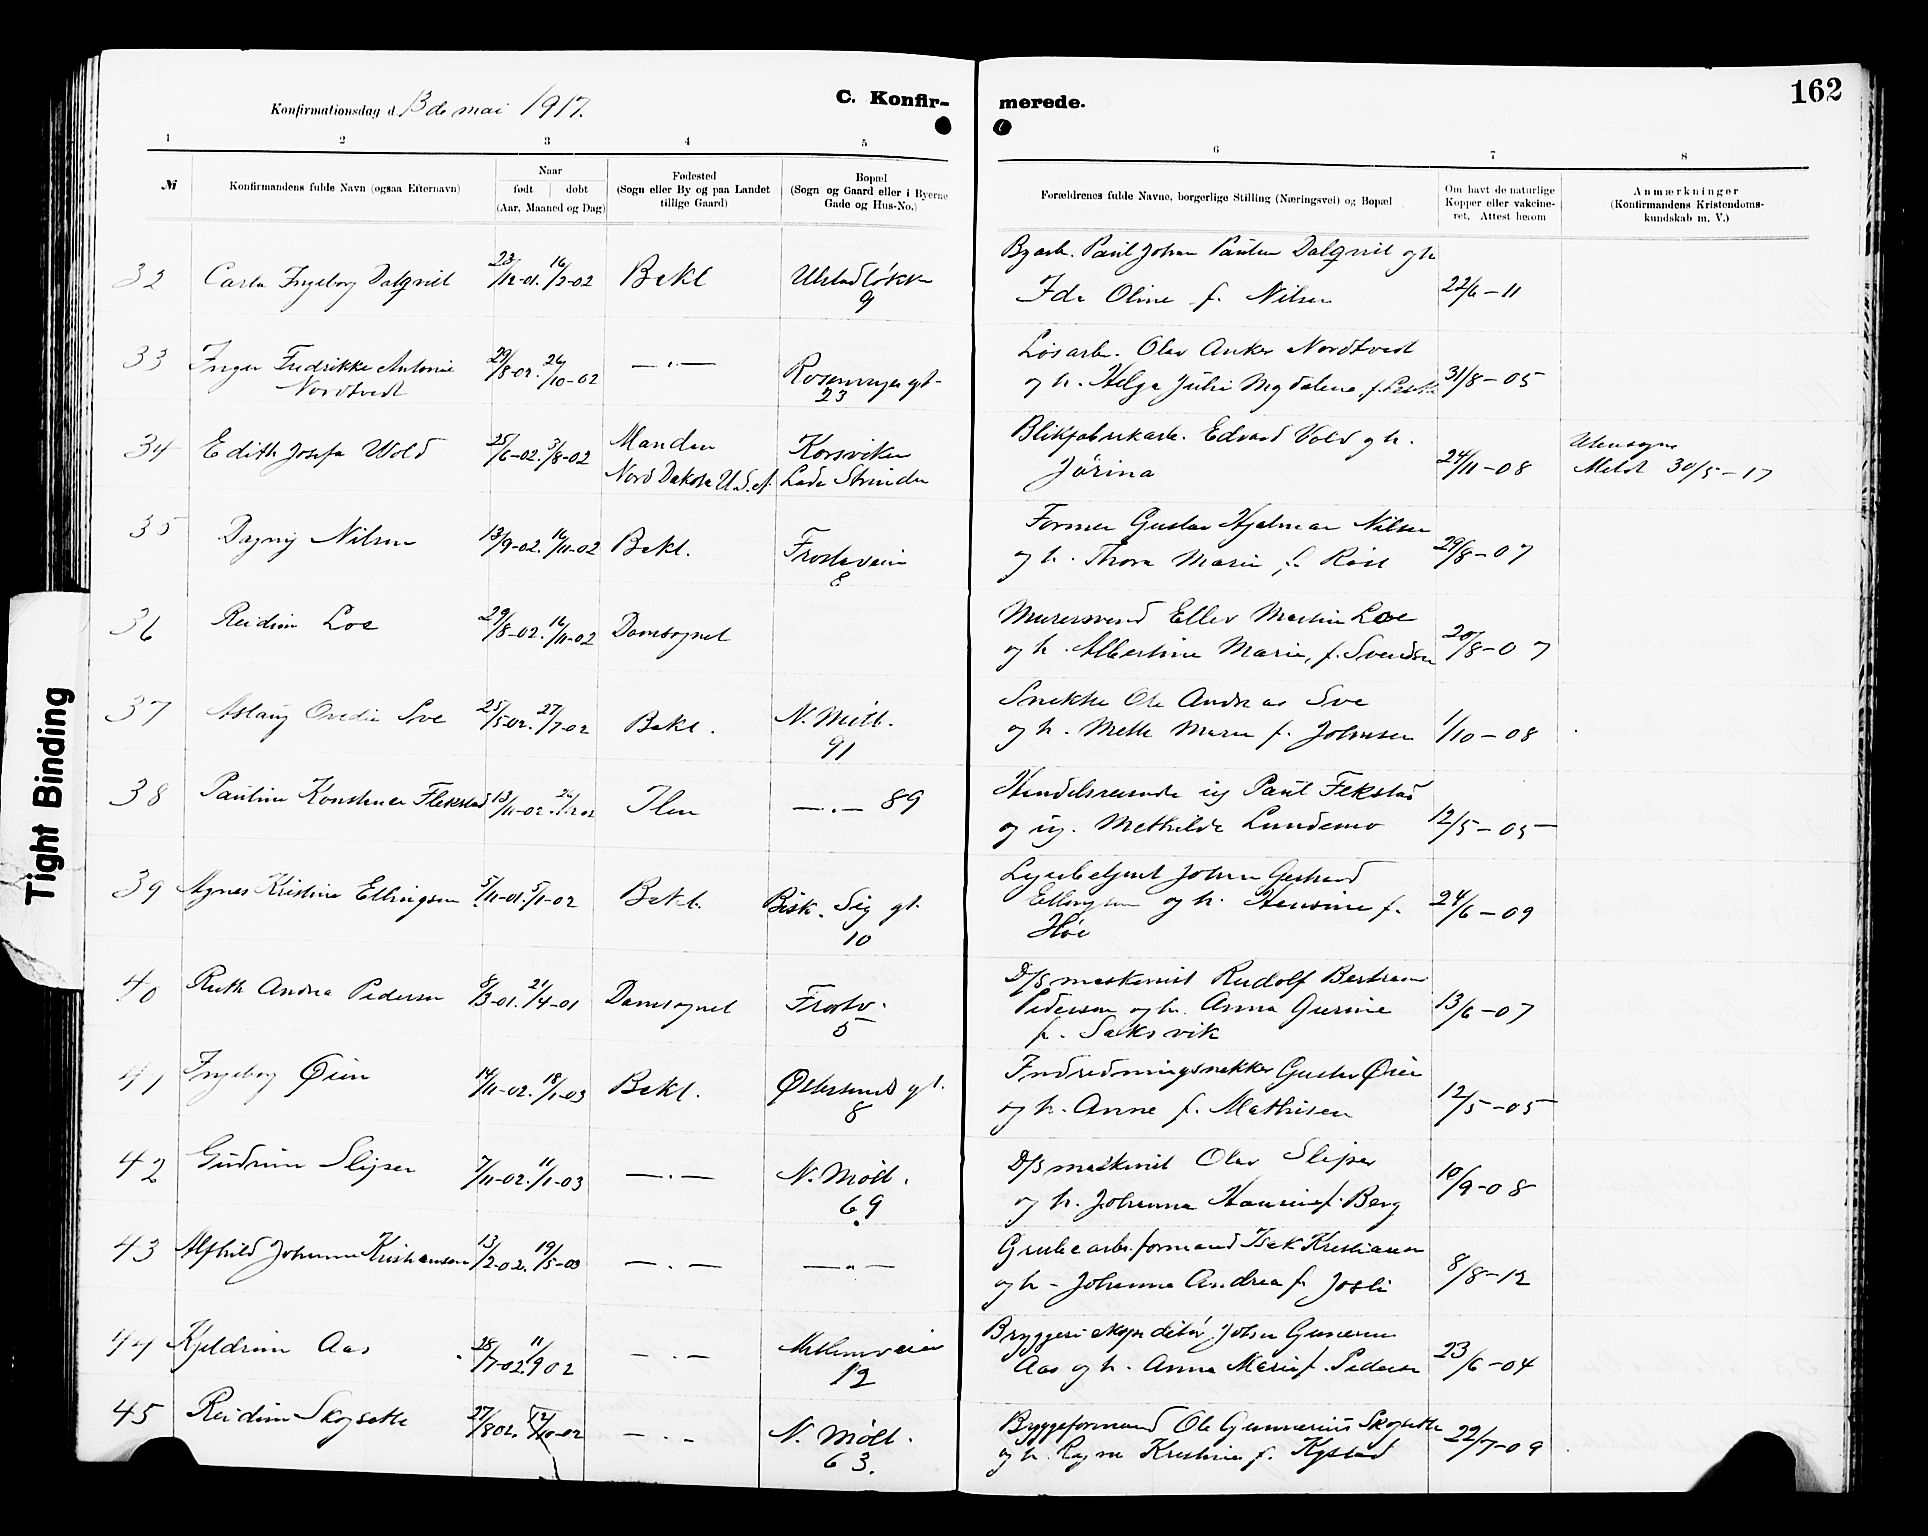 162
Konfirmationsdag d. 13de mai 1917.
C. Konfir-
merede.
1 2 3 4 5
6 7 8
№
Konfirmandens fulde Navn (ogsaa Efternavn)
Naar
født døbt
(Aar, Maaned og Dag)
Fødested
(Sogn eller By og paa Landet
tillige Gaard)
Bopæl
(Sogn og Gaard eller i Byerne
Gade og Hus-No.)
Forældrenes fulde Navne, borgerlige Stilling (Næringsvei) og Bopæl
Om havt de naturlige
Kopper eller vakcine-
ret. Attest herom
Anmærkninger
(Konfirmandens Kristendoms-
kundskab m. V.)
32 Carla Ingeborg Dalqvist 23/12-01. 16/2-02 Bakl Ulstadløkk 9
Byarb. Paul Johan Dalqvist og h
Ida Oline f. Nilsen 22/6-11
33 Inger Fredrikke Antonie
Nordtvedt 29/8-02. 26/10-02 —.— 23
Løsarb. Olav Anker Nordtvedt
og h. Helga Julie Magdalena f. 31/8-05
34 Edith Josefa Wold 25/6-02. 3/8-02 Mandan
Nord Dakota U.S.A. Korsviken
Lade Strinden
Blikfabrikarb. Edvard Vold og h.
Jørina 24/11-08
Utensogns
Meldt 30/5-17
35 Dagny Nilsen 13/9-02. 16/11-02 Bakl. Frostaveien
8
Former Gustav Hjalmar Nilsen
og h. Thora Marie f. 29/8-07
36 Reidun Loe 29/8-02. 16/11-02 Domsognet
Murersvend Ellev Martin Loe
og h. Albertine Marie, f. Svendsen 20/8-07
37 Aslaug Sve 25/5-02. 27/7-02 Bakl. N. Møll.
91
Snekker Ole Andreas Sve
og h. Mette Marie f. Johnsen 1/10-08
38 Pauline Konstanse Flekstad 13/11-02. Ilen —.— 89
Handelsreisende ug Paul Flekstad
og ug. Mathilde Lundemo 12/5-05
39 Agnes Kristine Ellingsen 5/11-01. 5/1-02 Bakl. Bisk. Sig gt.
10
Johan Gerhard
Ellingsen og h. Hensine f.
Høe 24/6-09
40 Ruth Andrea Pedersen 8/3-01. 21/4-01 Domsognet Frostv.
5
D/S maskinist Rudolf Bertram
Pedersen og h. Anna Gurine
f. Saksvik 13/6-07
41 Ingeborg Øien 14/11-02. 18/1-03 Bakl. Østersunds gt.
8
Indredningsnekker Gustav Øien
og h. Anne f. Mathisen 12/5-05
42 Gudrun Slipser 7/11-02. 11/1-03 —.— N. Møll.
69
D/S maskinist Olav Slipser
og h. Johanna f. Berg 10/9-08
43 Alfhild Johanne Kristiansen 13/2-02. 19/5-03 —.— —.—
Grubearb.formand Isak Kristiansen
og h - Johanna Andrea f. Josli 8/8-12
44 Kjeldrun Aas 28/7-02. 11/9 02 —.— 12
Bryggeri ekspeditør Johan Gunerius
Aas og h. Anna Marie f. Pedersen 23/6-04
45 Reidun Skogseth 27/8 02. 12/10-02 —.— N. Møll.
63.
Bryggeformand Ole Gunnerius Skogseth
og h. Kristine f. Kystad 22/7-09
Tight Binding